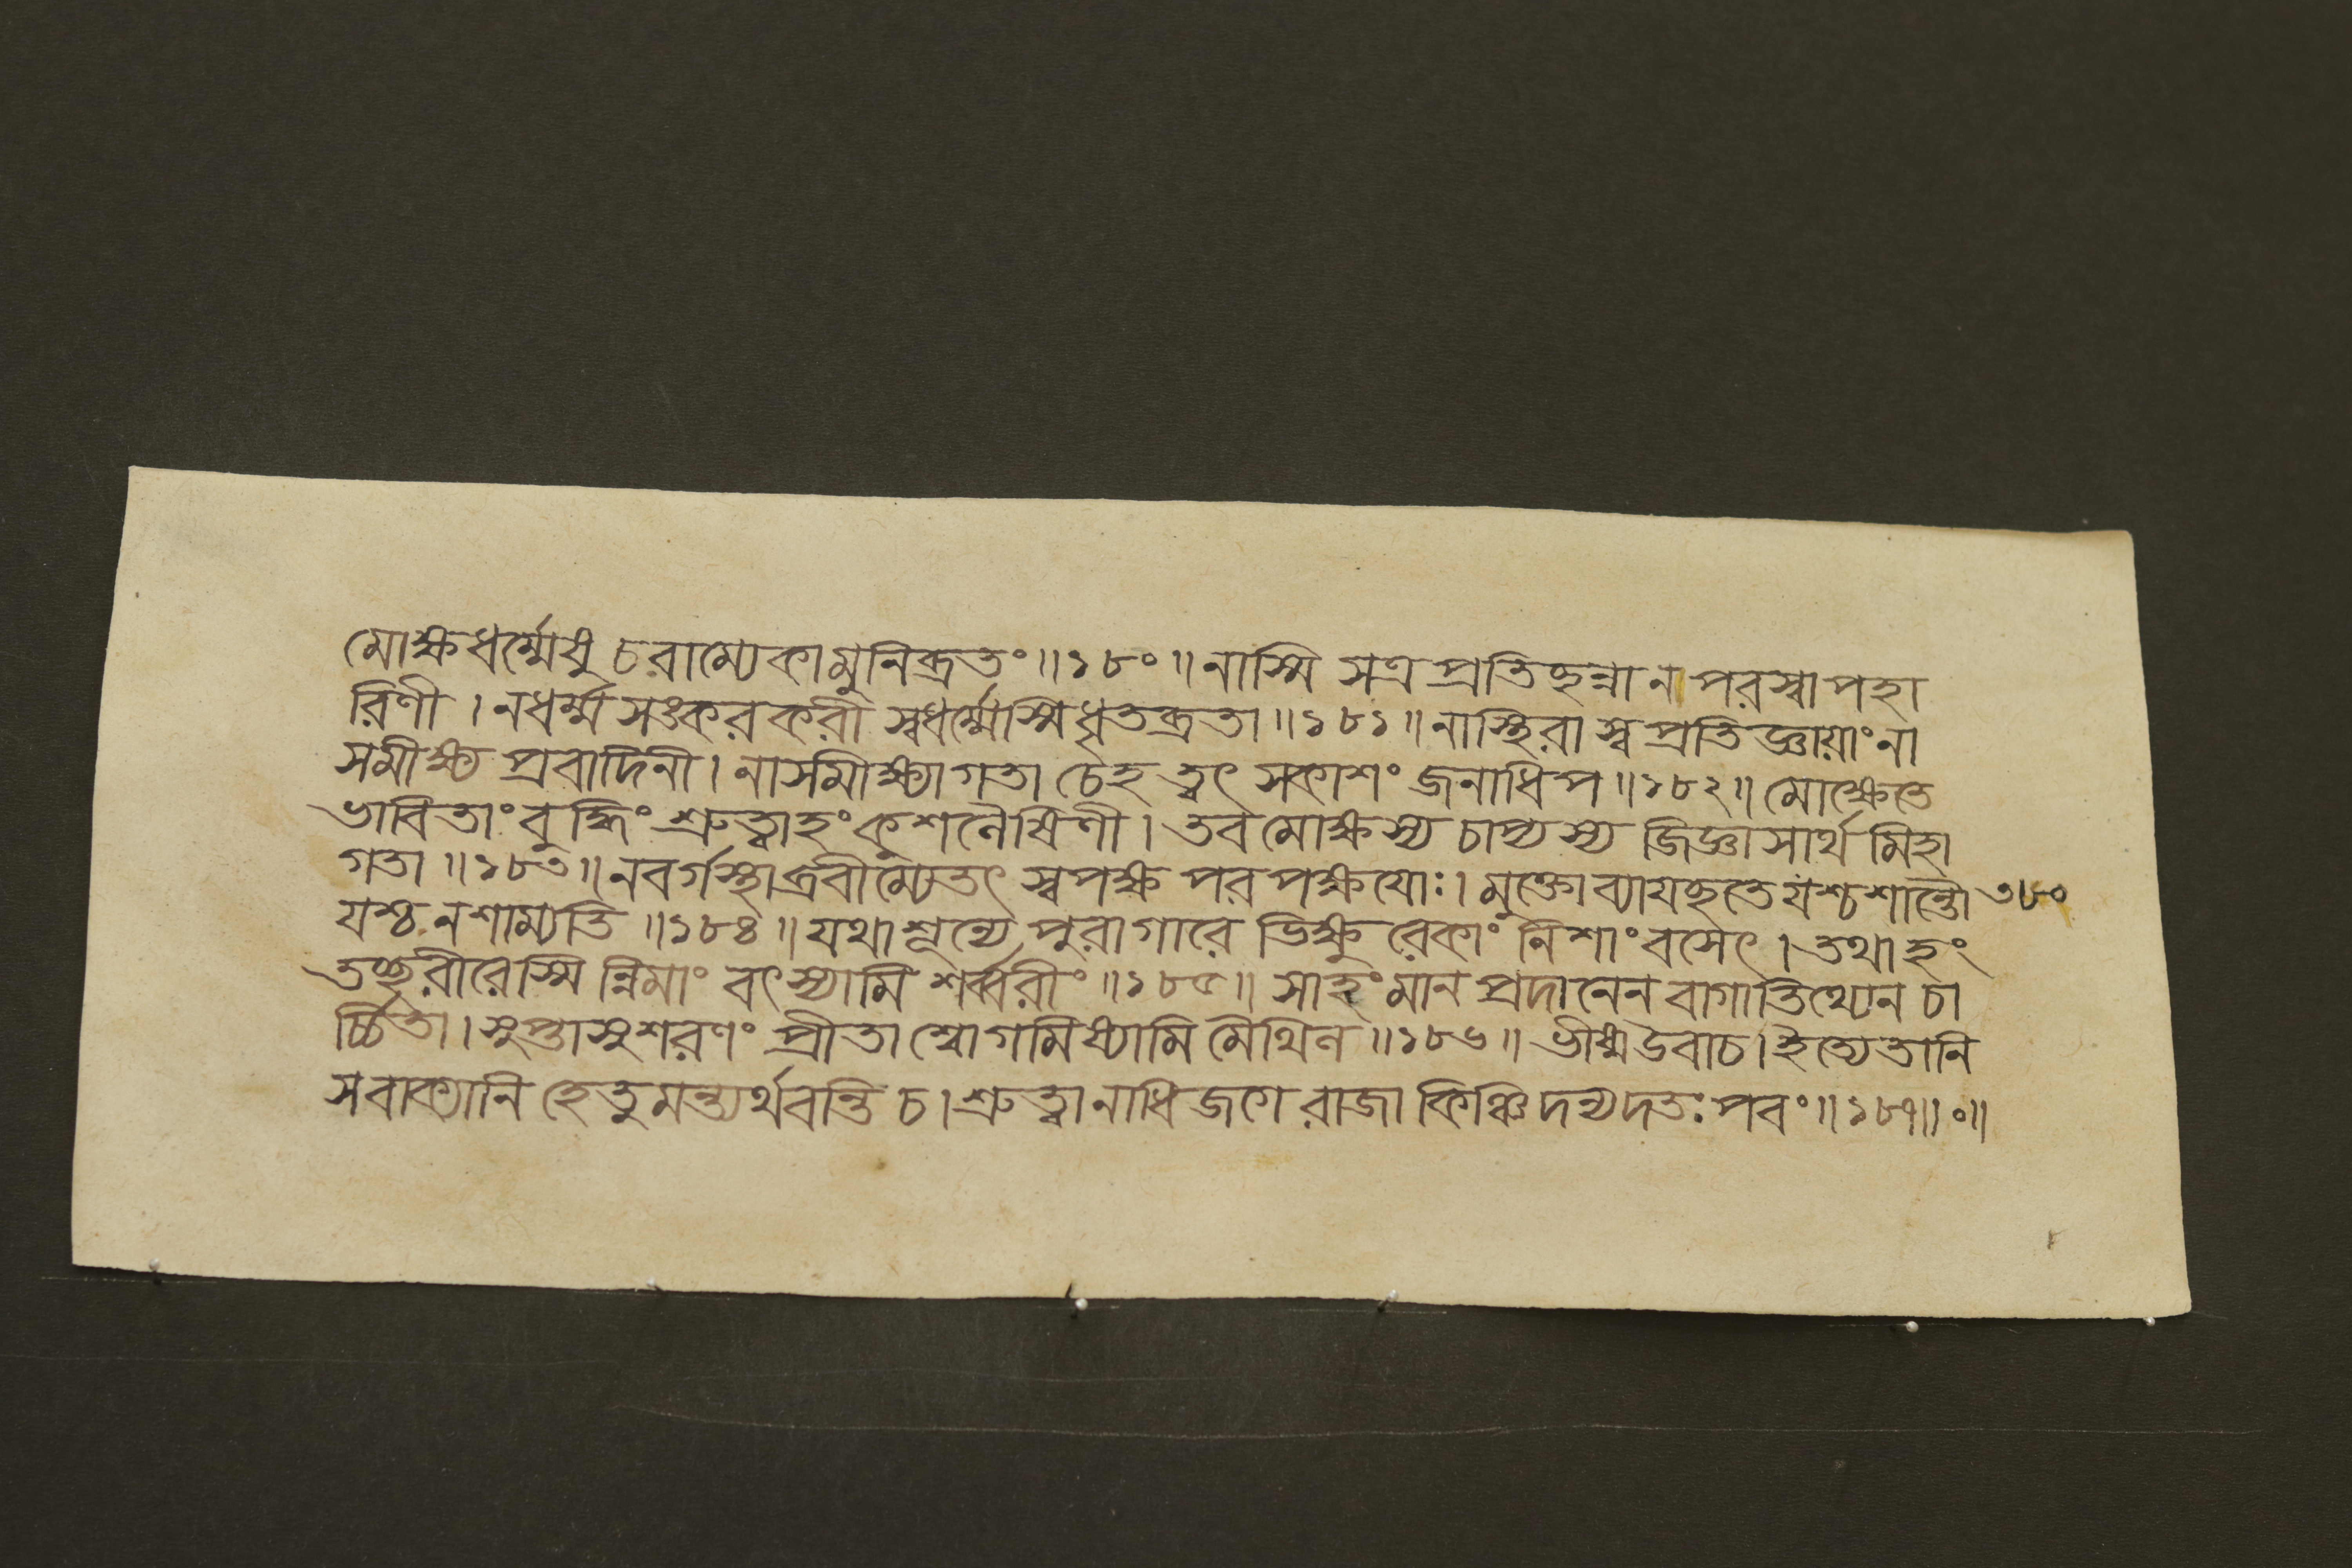 মোক্ষধর্ম্মেষু চরাম্যেকামুনিব্রতং ॥১৮০॥ নাস্মি সত্র প্রতিছন্না ন পরস্বাপহা
রিণী । নধর্ম্ম সঙ্করকরী স্বধর্ম্মেস্মি ধৃতব্রতা ॥১৮১॥ নাস্থিরা স্ব প্রতিজ্ঞায়াং না
সমীক্ষ্য প্রবাদিনী । নাসমীক্ষ্যাগতা চেহ ত্বৎ সকাশং জনাধিপ ॥১৮২॥ মোক্ষেতে
ভাবিতাং বুদ্ধিং শ্রুত্বাহং কুশলৈষিণী । তব মোক্ষস্য চাপ্যস্য জিজ্ঞাসার্থ মিহা
গতা ॥১৮৩॥ নবর্গস্থা ব্রবীম্যেতৎ স্বপক্ষ পরপক্ষযোঃ । মুক্তো ব্যাযছতে যশ্চ শান্তৌ ৩৮০
যশ্চ ন শাম্যতি ॥১৮৪॥ যথা শূন্যে পুরাগারে ভিক্ষু রেকাং নিশাং বসেৎ । তথা হং
তচ্ছরীরেস্মি ন্নিমাং বৎস্যামি শর্ব্বরীং ॥১৮৫॥ সাহং মান প্রদানেন বাগাতিথ্যেন চা
র্চ্চিতা । সুপ্তা সুশরণং প্রীতা শ্বোগমিষ্যামি মৈথিল ॥১৮৬॥ ভীষ্ম উবাচ । ইত্যেতানি
সবাক্যানি হেতুমন্ত্যর্থবন্তি চ । শ্রুত্বা নাধিজগে রাজা কিঞ্চিদন্যদতঃ পরং ॥১৮৭॥০॥